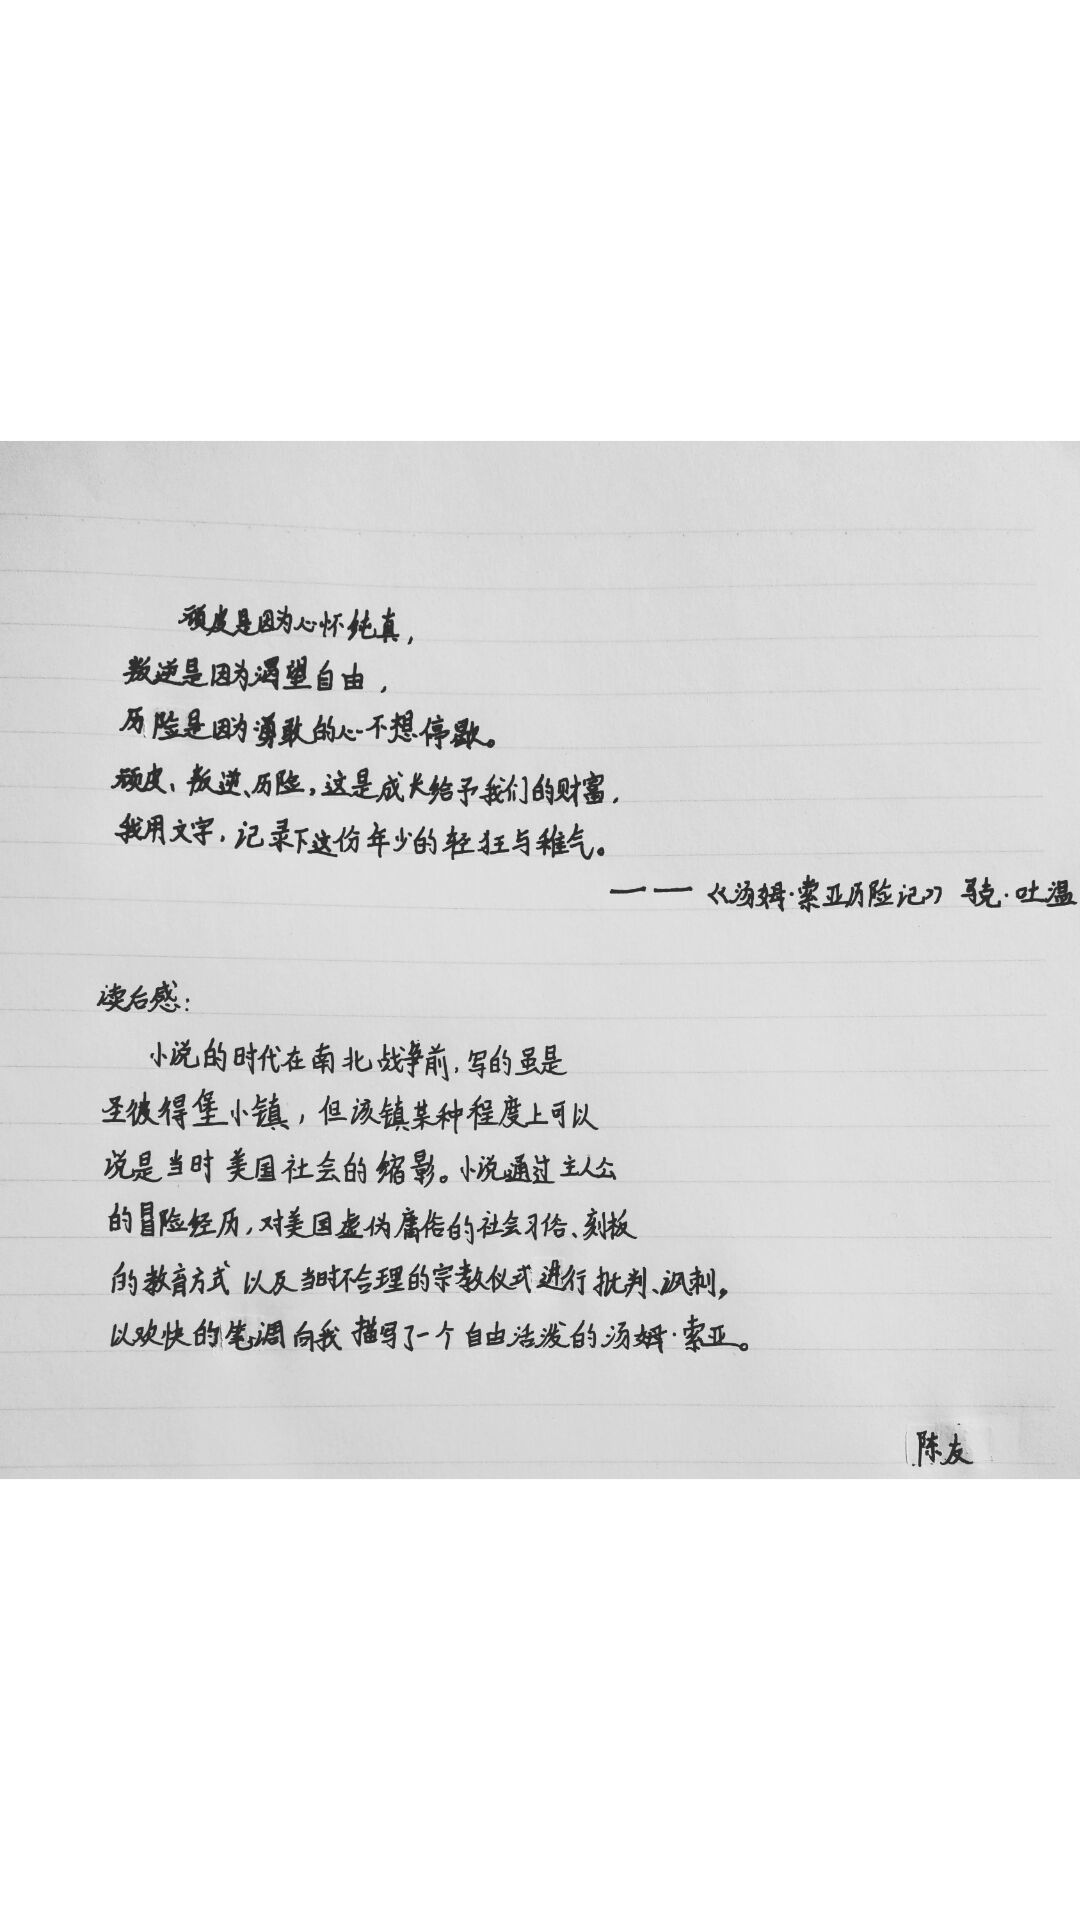 顽皮是因为心怀纯真，
叛逆是因为渴望自由，
历险是因为勇敢的心不想停歇。
顽皮、叛逆、历险，这是成长给予我们的财富，
我用文字，记录下这份年少的轻狂与稚气。
——《汤姆·索亚历险记》 马克·吐温
读后感：
小说的时代在南北战争前，写的虽是
圣彼得堡小镇，但该镇某种程度上可以
说是当时美国社会的缩影。小说通过主人公
的冒险经历，对美国虚伪庸俗的社会习俗、刻板
的教育方式以及当时不合理的宗教仪式进行批判、讽刺，
以欢快的笔调向我描写了一个自由活泼的汤姆·索亚。
陈友